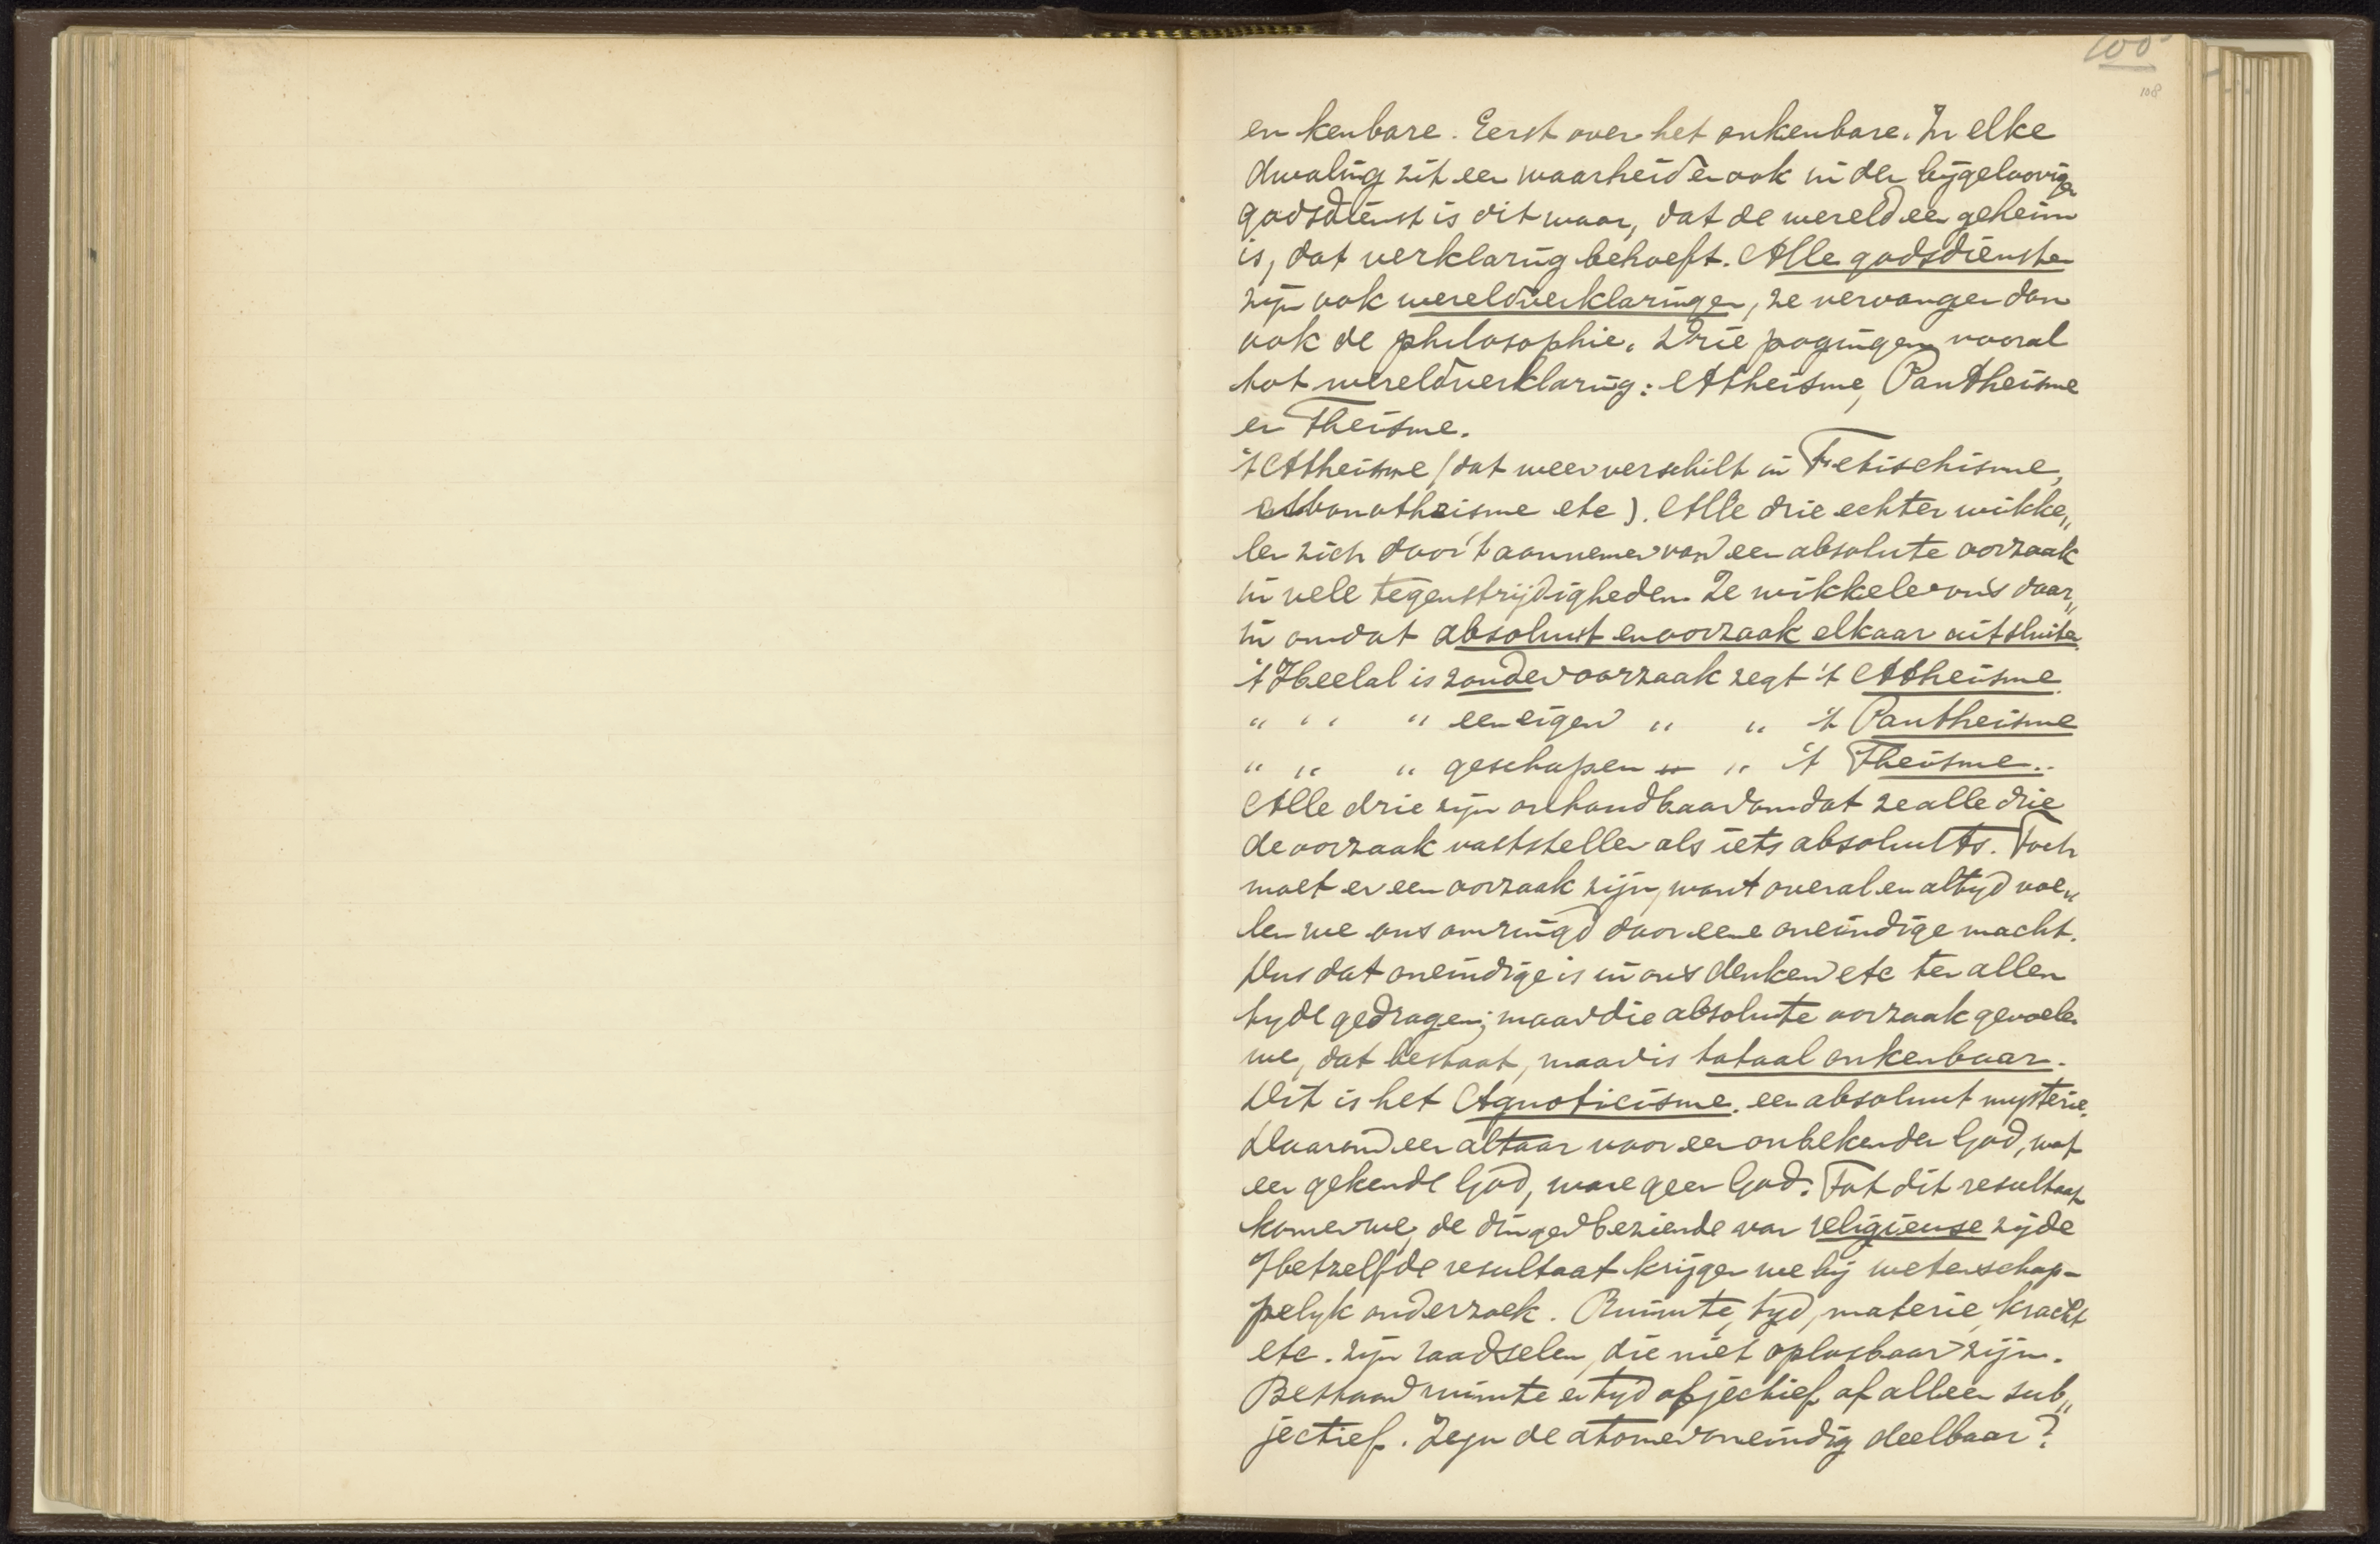 100
108
en kenbare. Eerst over het onkenbare. In elke
dwaling zit een waarheid en ook in den bijgeloovigen
godsdienst is dit waar, dat de wereld een geheim
is, dat verklaring behoeft. Alle godsdiensten
zijn ook wereldverklaringen, ze vervangen dan
ook de philosophie. Drie pogingen vooral
tot wereldverklaring: Atheisme, Pantheisme
en Theisme.
't Atheisme (dat weer verschilt in Fetischisme,
etc). Alle drie echter wikke„
len zich door 't aannemen van een absolute oorzaak
in vele tegenstrijdigheden. Ze wikkelen ons daar„
in omdat absoluut en oorzaak elkaar uitsluiten.
't Heelal is zonder oorzaak zegt 't Atheisme.
„ „ „ een eigen „ „ 't Pantheisme
„ „ „ geschapen „ „ 't Theisme.
Alle drie zijn onhoudbaar omdat ze alle drie
de oorzaak vaststellen als iets absoluuts. Toch
moet er een oorzaak zijn, want overal en altyd voe„
len we ons omringd door eene oneindige macht.
Dus dat oneindige is in ons denken etc ten allen
tyde gedragen; maar die absolute oorzaak gevoelen
we, dat bestaat, maar is totaal onkenbaar.
Dit is het Agnosticisme. een absoluut mysterie.
Daarom een altaar voor een onbekenden God, want
een gekende God, ware geen God. Tot dit resultaat
komen we, de dingen beziende van religieuse zijde
Hetzelfde resultaat krijgen we bij wetenschap-
pelyk onderzoek. Ruimte, tyd, materie, kracht
etc. zijn raadselen, die niet oplosbaar zijn.
Bestaan ruimte en tyd objectief of alleen sub„
jectief. Zijn de atomen oneindig deelbaar?